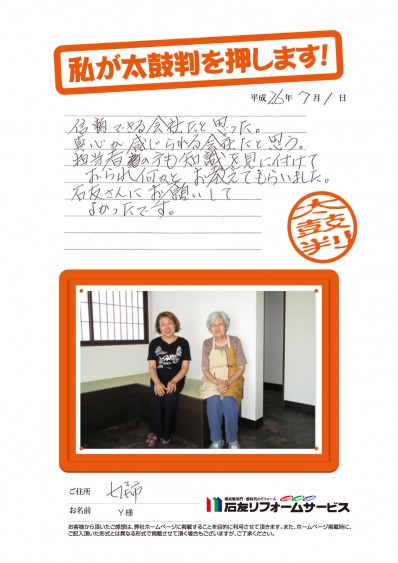 私が太鼓判を押します!
平成26年7月1日
信頼できる会社だと思った。
真心が感じられる会社だと思う。
担当者の方も知識を見に付けて
おられ何かと お教えてもらいました。
石友さんにお願いして
よかったです。
太鼓判
ご住所 七尾市
お名前 Y様
石友リフォームサービス
お客様から頂いたご感想は、弊社ホームページに掲載することを目的に利用させて頂きます。また、ホームページ掲載時に、
ご記入頂いた形式とは異なる形式で掲載させて頂く場合もございますが、ご了承ください。